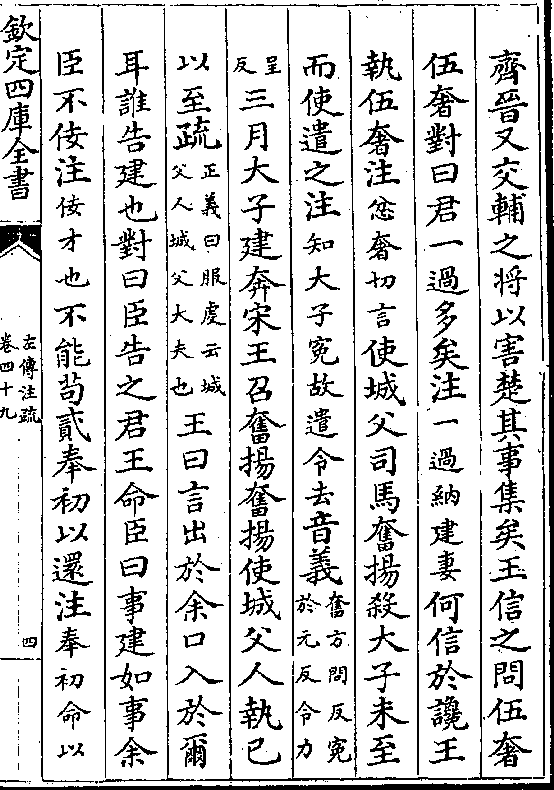 齊晉又交輔之将以害楚其事集矣王信之問伍奢
伍奢對曰君一過多矣注一過納建妻何信於讒王
執伍奢注忿奢切言使城父司馬奮揚殺大子未至
而使遣之注知大子寃故遣令去音義奮方問反寃於元反令力
呈反三月大子建奔宋王召奮揚奮揚使城父人執已
以至疏正義曰服虔云城父人城父大夫也王曰言出於余口入於爾
耳誰告建也對曰臣告之君王命臣曰事建如事余
臣不佞注佞才也不能苟貳奉初以還注奉初命以
欽定四庫全書
左傳注疏
卷四十九
四